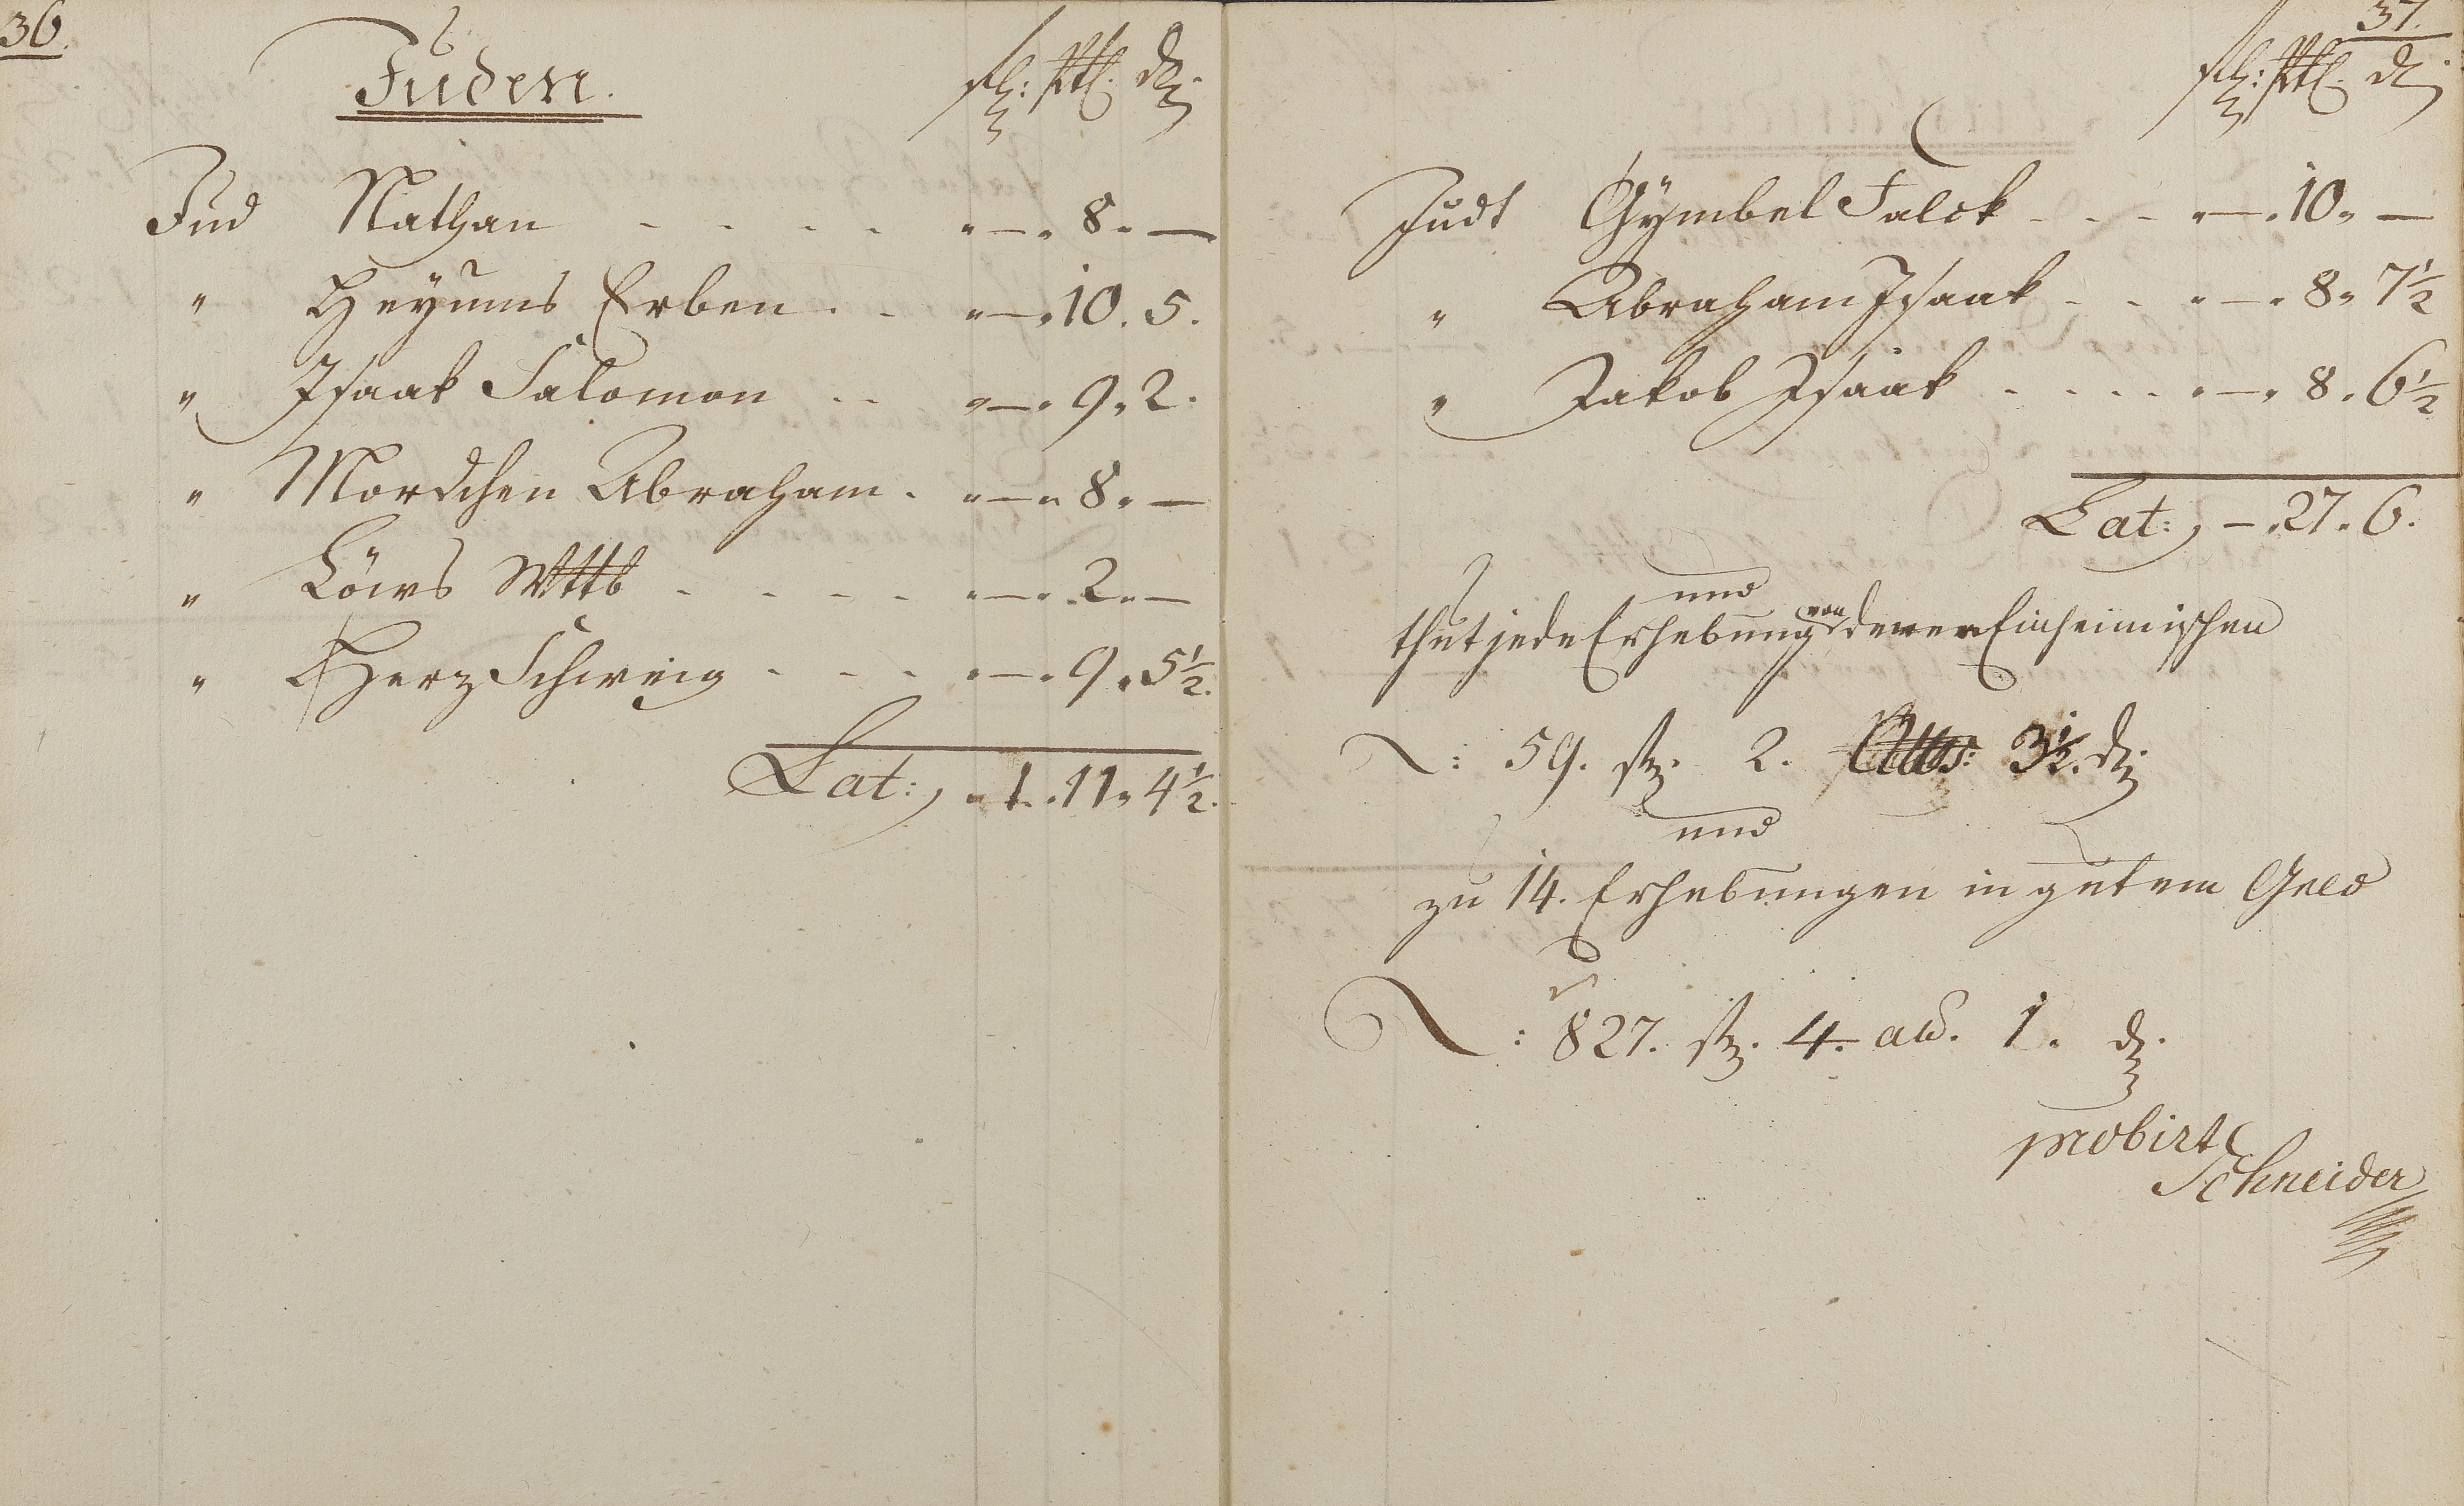 36.
Juden.
Jud Nathan - - - - " — " 8 " —
" Heyums Erben . . " — " 10 . 5 .
" Isaak Salomon . . " — " 9 " 2 .
" Mordchen Abraham . " — " 8 " —
" Löws Wttb - - - - " — " 2 " —
" Herz Schweig - - - " — " 9 " 5½.
Lat: " 1 " 11 " 4½.
37.
Judt Gymbel Falck - - - " — " 10 " —
" Abraham Isaak - - " — " 8 " 7½
" Jakob Isaak - - - - " — " 8 " 6½
Lat: — " 27 " 6.
und
thut jede Erhebung von denen Einheimischen
: 59. 2. 3½.
und
zu 14. Erhebungen in gutem Geld
: 827. 4. alb. 1.
probirt
Schneider